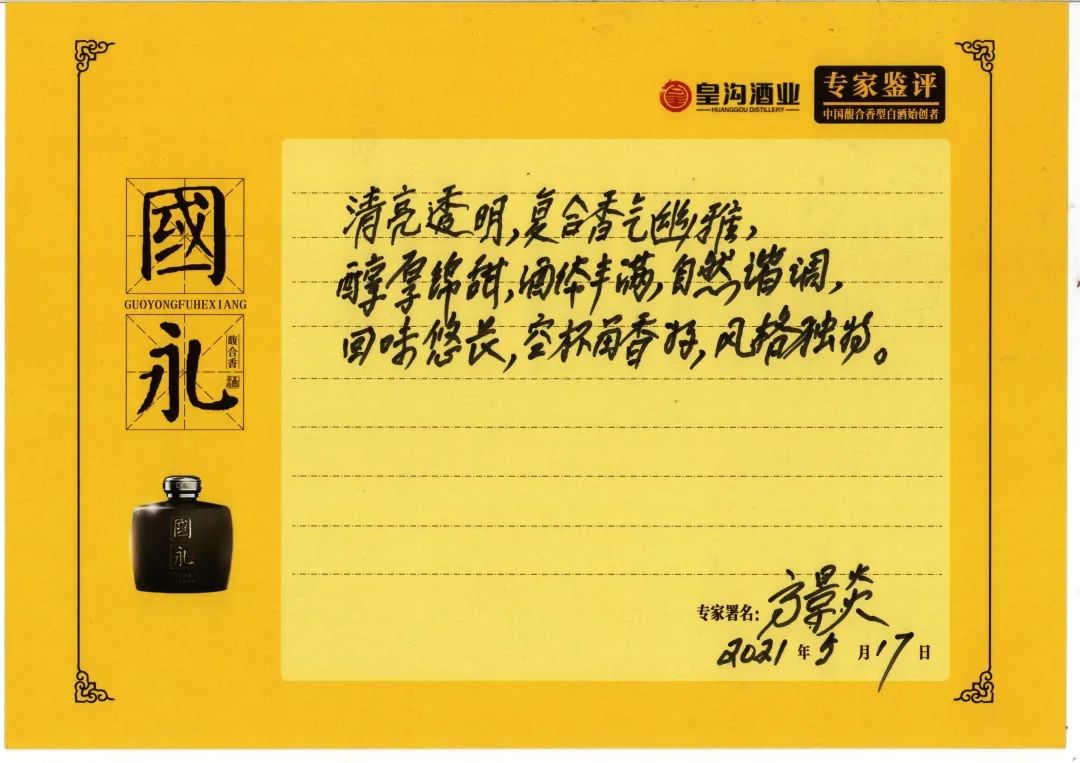 皇沟酒业
HUANGGOU DISTILLERY
专家鉴评
中国馥合香型白酒始创者
國
GUOYONGFUHEXIANG
永
馥合香
清亮透明,复合香气幽雅,
醇厚绵甜,酒体丰满,自然谐调,
回味悠长,空杯留香好,风格独特。
國
永
专家署名:方景炎
2021年5月17日